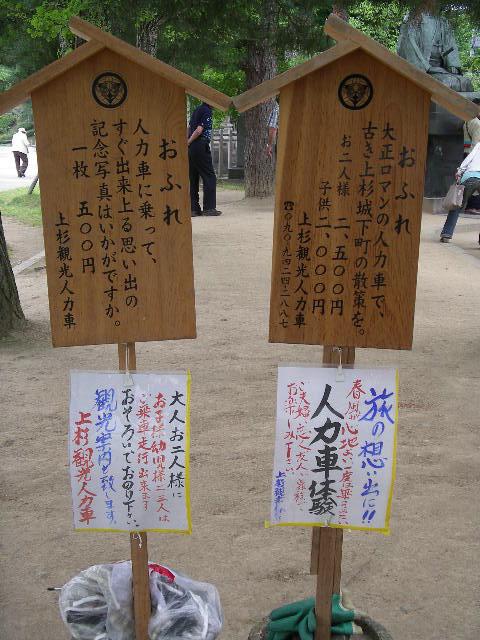 おふれ
大正ロマンの人力車で、
古き上杉城下町の散策を。
お二人様 二、五〇〇円
子供 二、〇〇〇円
上杉観光人力車
☎〇九〇-九四二四-二八八七
おふれ
人力車に乗って、
すぐ出来上る思い出の
記念写真はいかがですか。
一枚 五〇〇円
上杉観光人力車
旅の想い出に!!
春風が心地よい
人力車体験
お楽しみ下さい
大人お二人様に
お子様幼児様二三人は
ご乗車走行出来ます
おそろいでおのり下さい
観光案内も致します
上杉観光人力車